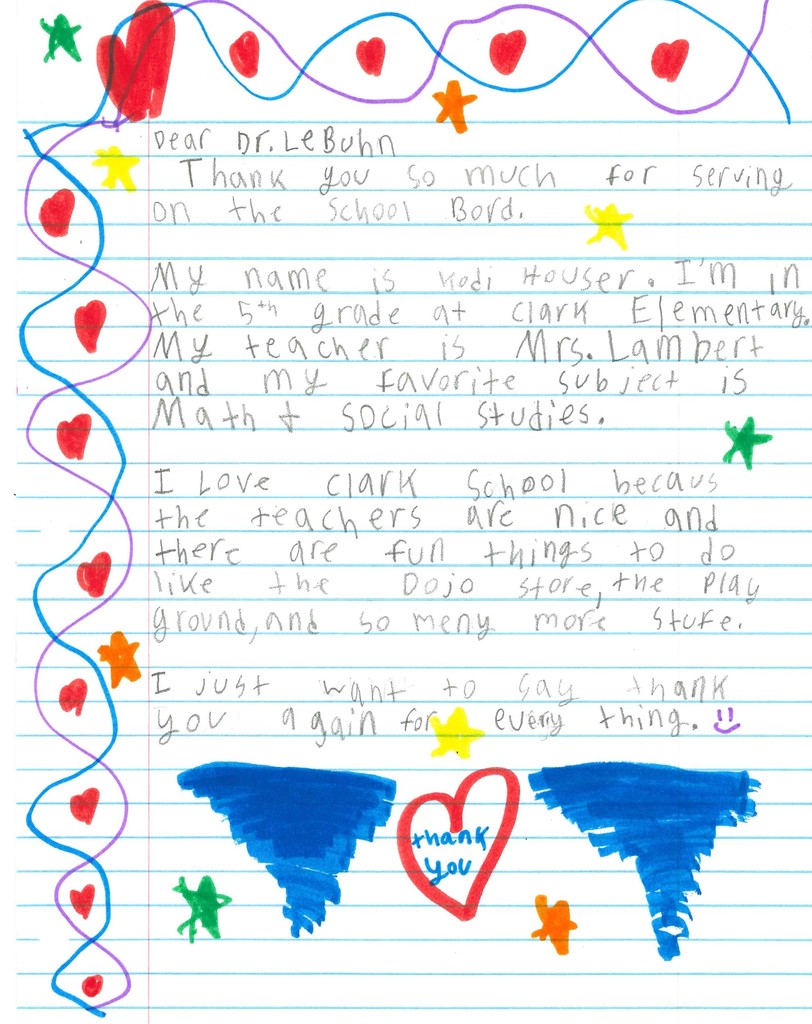 Dear Dr. LeBuhn
Thank you so much for serving
on the School Bord.
My name is Kodi Houser. I'm in
the 5th grade at Clark Elementary.
My teacher is Mrs. Lambert
and my favorite subject is
Math + Social Studies.
I Love Clark School becaus
the teachers are nice and
there are fun things to do
like the Dojo store, the play
ground, and so meny more stufe.
I just want to say thank
you again for every thing.
thank
you